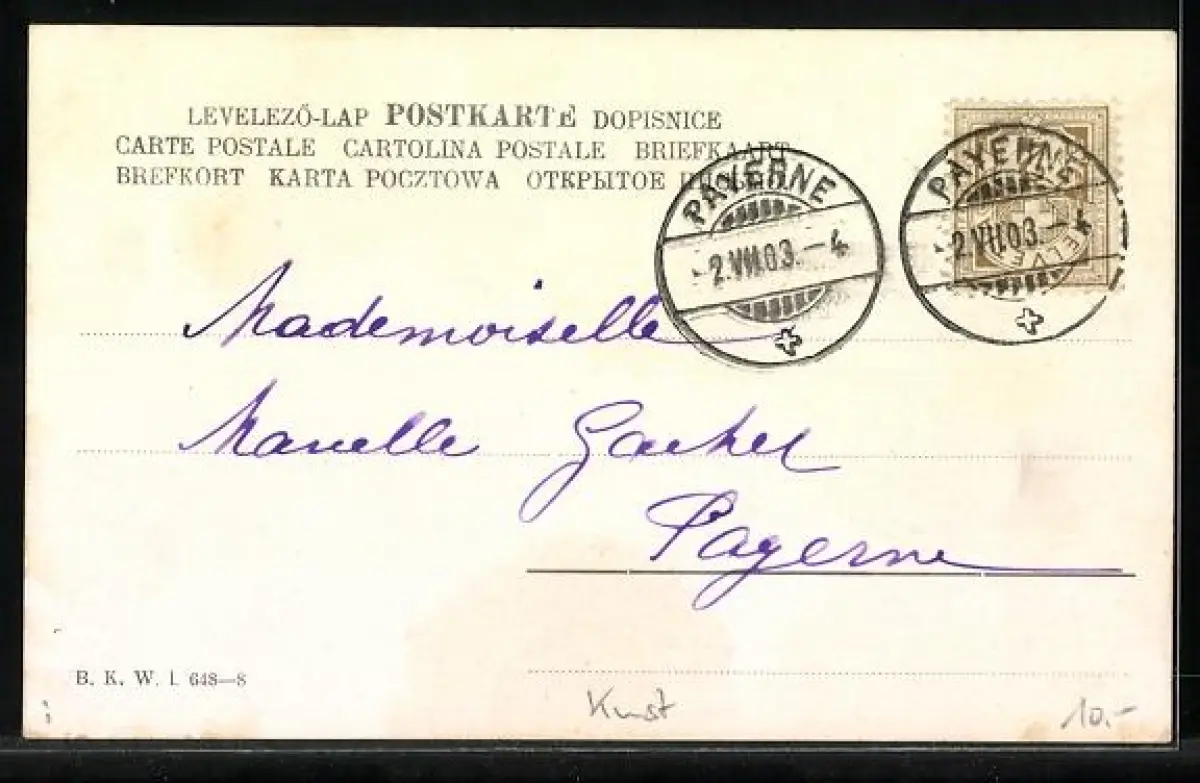 LEVELEZŐ-LAP POSTKARTE DOPISNICE
CARTE POSTALE CARTOLINA POSTALE BRIEFKAART
BREFKORT KARTA POCZTOWA ОТКРЫТОЕ
PAYERNE
2.VII.03.–4
PAYERNE
2.VII.03.–4
Mademoiselle
Payerne
B. K. W. I. 648–8
Kunst
10.-